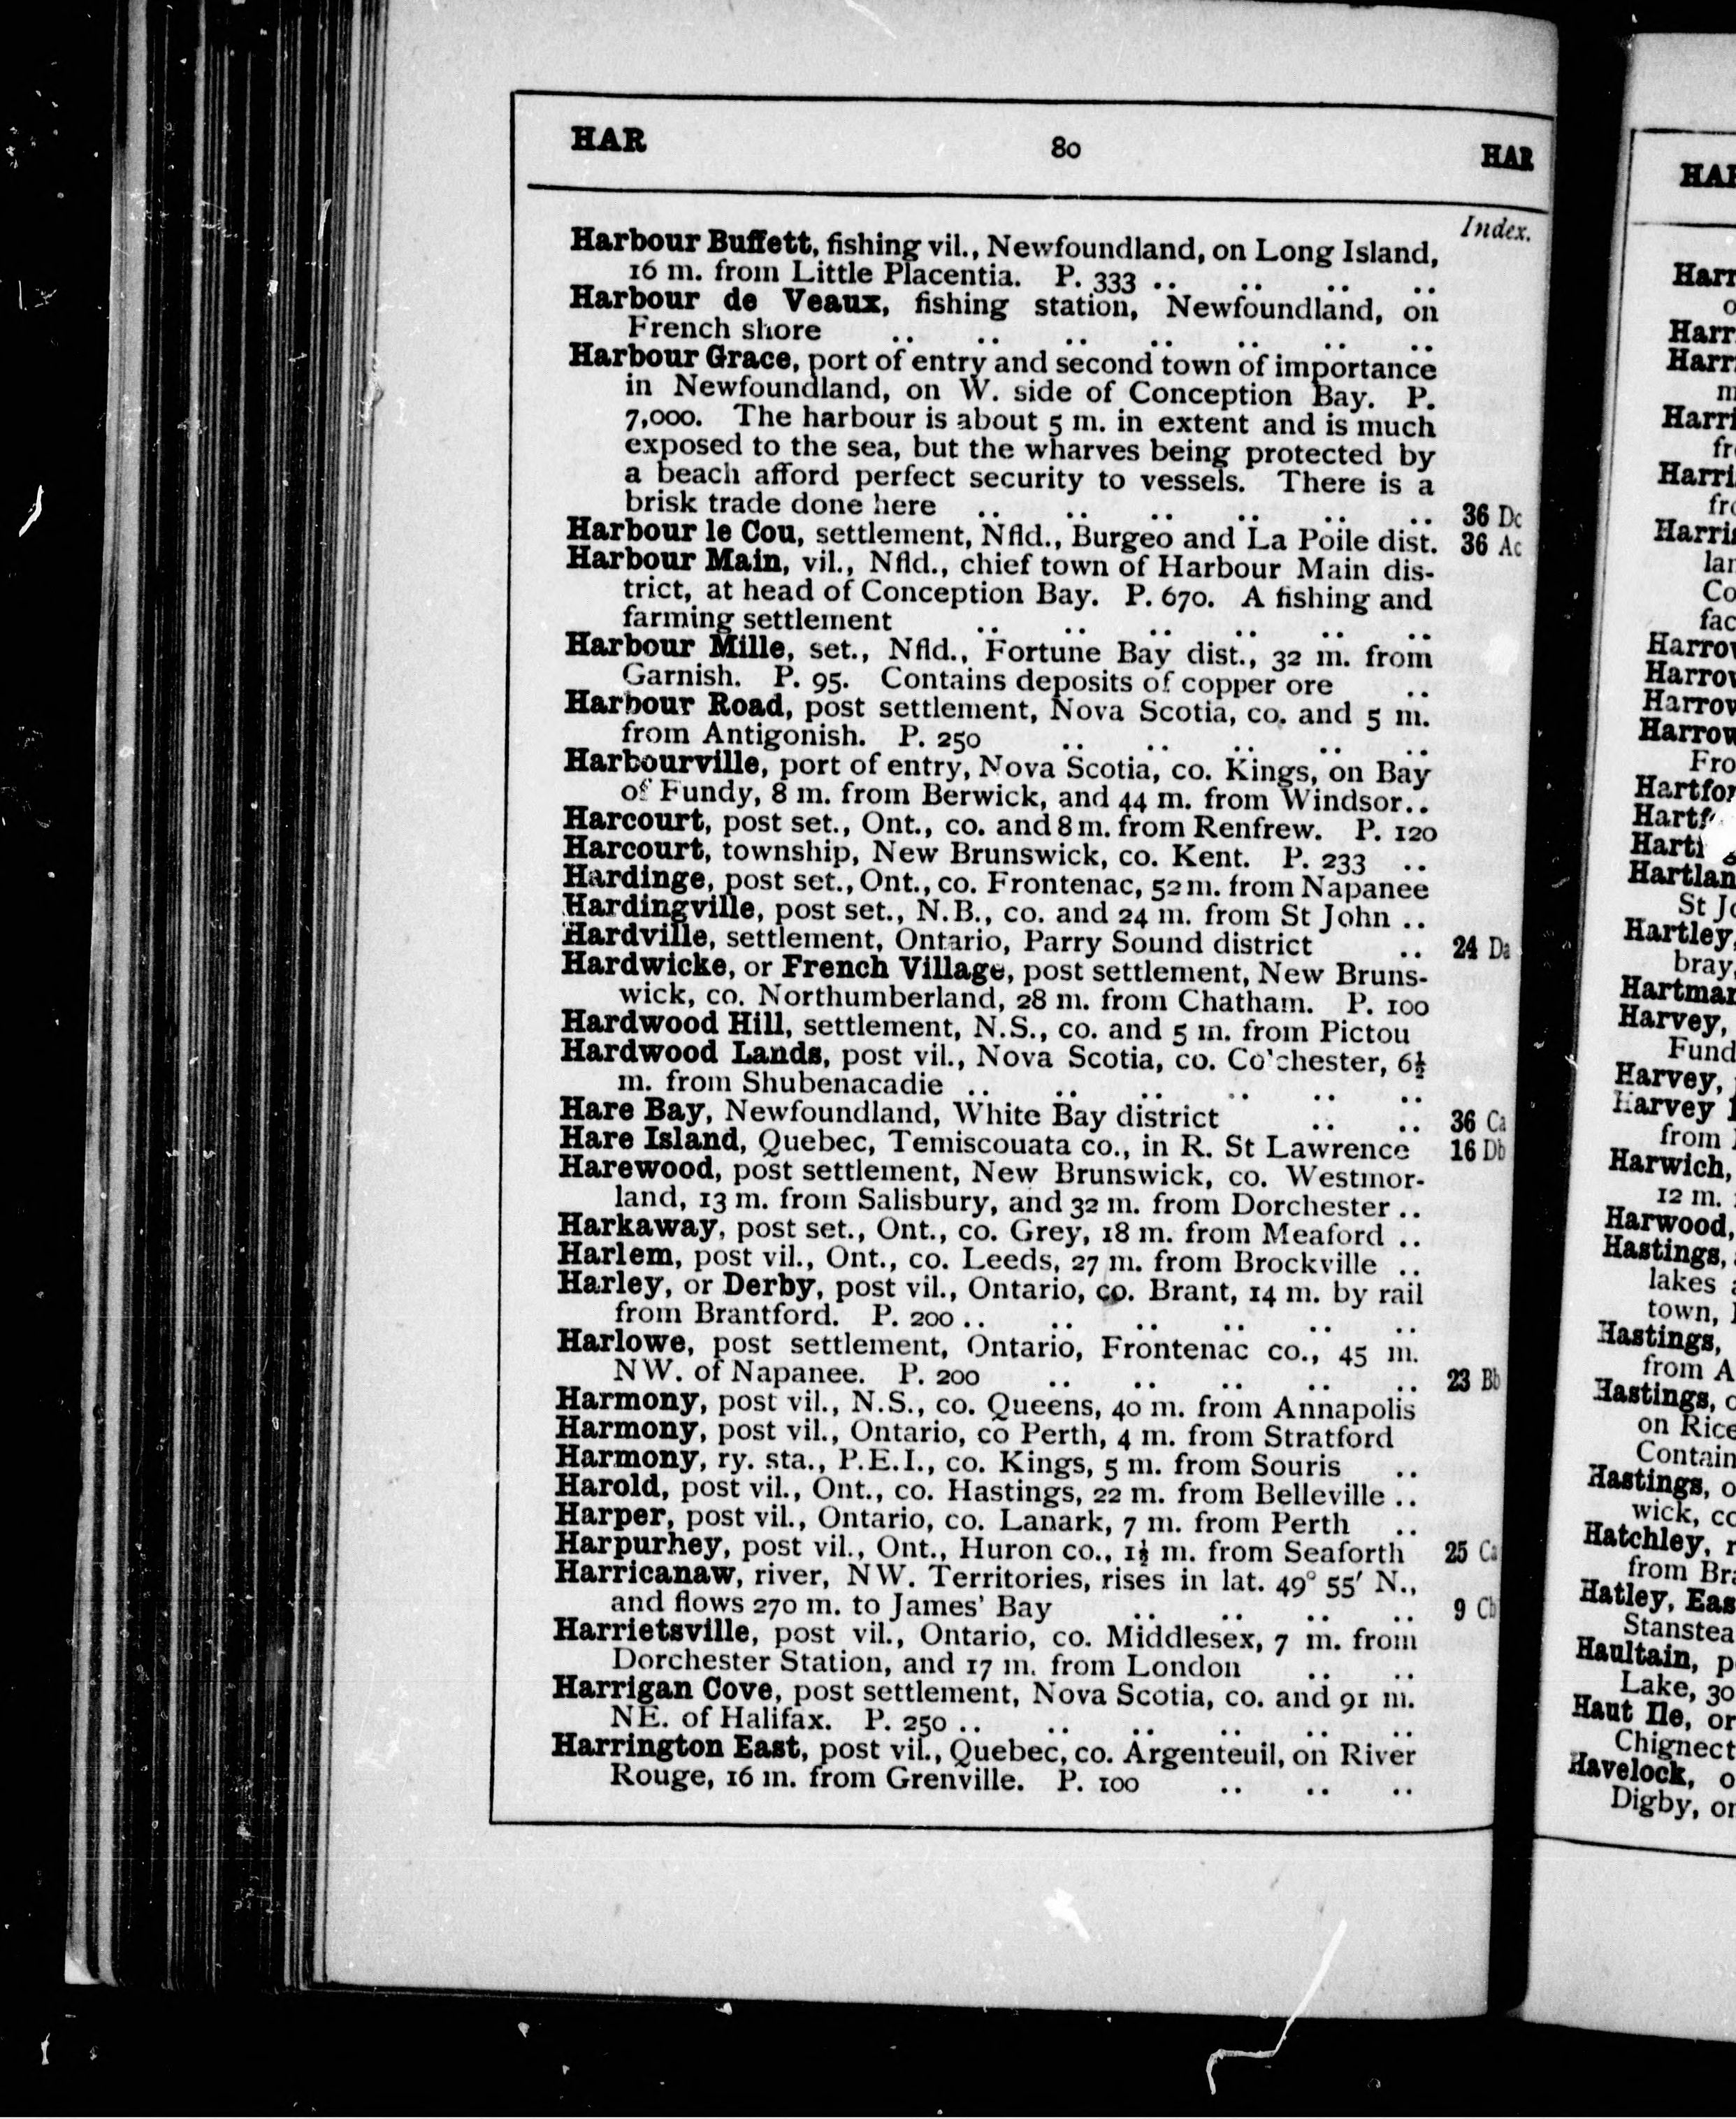 HAR 80 HAR
Index.
Harbour Buffett, fishing vil., Newfoundland, on Long Island,
16 m. from Little Placentia. P. 333 .. .. .. ..
Harbour de Veaux, fishing station, Newfoundland, on
French shore .. .. .. .. .. .. ..
Harbour Grace, port of entry and second town of importance
in Newfoundland, on W. side of Conception Bay. P.
7,000. The harbour is about 5 m. in extent and is much
exposed to the sea, but the wharves being protected by
a beach afford perfect security to vessels. There is a
brisk trade done here .. .. .. .. .. .. 36 Dc
Harbour le Cou, settlement, Nfld., Burgeo and La Poile dist. 36 Ac
Harbour Main, vil., Nfld., chief town of Harbour Main dis-
trict, at head of Conception Bay. P. 670. A fishing and
farming settlement .. .. .. .. .. ..
Harbour Mille, set., Nfld., Fortune Bay dist., 32 m. from
Garnish. P. 95. Contains deposits of copper ore ..
Harbour Road, post settlement, Nova Scotia, co. and 5 m.
from Antigonish. P. 250 .. .. .. .. ..
Harbourville, port of entry, Nova Scotia, co. Kings, on Bay
of Fundy, 8 m. from Berwick, and 44 m. from Windsor..
Harcourt, post set., Ont., co. and 8 m. from Renfrew. P. 120
Harcourt, township, New Brunswick, co. Kent. P. 233 ..
Hardinge, post set., Ont., co. Frontenac, 52 m. from Napanee
Hardingville, post set., N.B., co. and 24 m. from St John ..
Hardville, settlement, Ontario, Parry Sound district .. 24 Da
Hardwicke, or French Village, post settlement, New Bruns-
wick, co. Northumberland, 28 m. from Chatham. P. 100
Hardwood Hill, settlement, N.S., co. and 5 m. from Pictou
Hardwood Lands, post vil., Nova Scotia, co. Colchester, 6½
m. from Shubenacadie .. .. .. .. .. ..
Hare Bay, Newfoundland, White Bay district .. .. 36 Ca
Hare Island, Quebec, Temiscouata co., in R. St Lawrence 16 Db
Harewood, post settlement, New Brunswick, co. Westmor-
land, 13 m. from Salisbury, and 32 m. from Dorchester ..
Harkaway, post set., Ont., co. Grey, 18 m. from Meaford ..
Harlem, post vil., Ont., co. Leeds, 27 m. from Brockville ..
Harley, or Derby, post vil., Ontario, co. Brant, 14 m. by rail
from Brantford. P. 200 .. .. .. .. .. ..
Harlowe, post settlement, Ontario, Frontenac co., 45 m.
NW. of Napanee. P. 200 .. .. .. .. .. 23 Bb
Harmony, post vil., N.S., co. Queens, 40 m. from Annapolis
Harmony, post vil., Ontario, co Perth, 4 m. from Stratford
Harmony, ry. sta., P.E.I., co. Kings, 5 m. from Souris ..
Harold, post vil., Ont., co. Hastings, 22 m. from Belleville ..
Harper, post vil., Ontario, co. Lanark, 7 m. from Perth ..
Harpurhey, post vil., Ont., Huron co., 1½ m. from Seaforth 25 Ca
Harricanaw, river, NW. Territories, rises in lat. 49° 55′ N.,
and flows 270 m. to James' Bay .. .. .. .. 9 Cb
Harrietsville, post vil., Ontario, co. Middlesex, 7 m. from
Dorchester Station, and 17 m. from London .. ..
Harrigan Cove, post settlement, Nova Scotia, co. and 91 m.
NE. of Halifax. P. 250 .. .. .. .. .. ..
Harrington East, post vil., Quebec, co. Argenteuil, on River
Rouge, 16 m. from Grenville. P. 100 .. .. ..
Harvey,
Fund
Harvey,
Harvey
from
Harwich,
12 m.
Harwood,
Hastings,
lakes
town,
Hastings,
from A
Hastings,
on Rice
Contain
Hastings,
wick, co
Hatchley,
from Bra
Hatley, Eas
Stanstea
Haultain,
Lake, 30
Haut Ile, or
Chignect
Havelock,
Digby, or